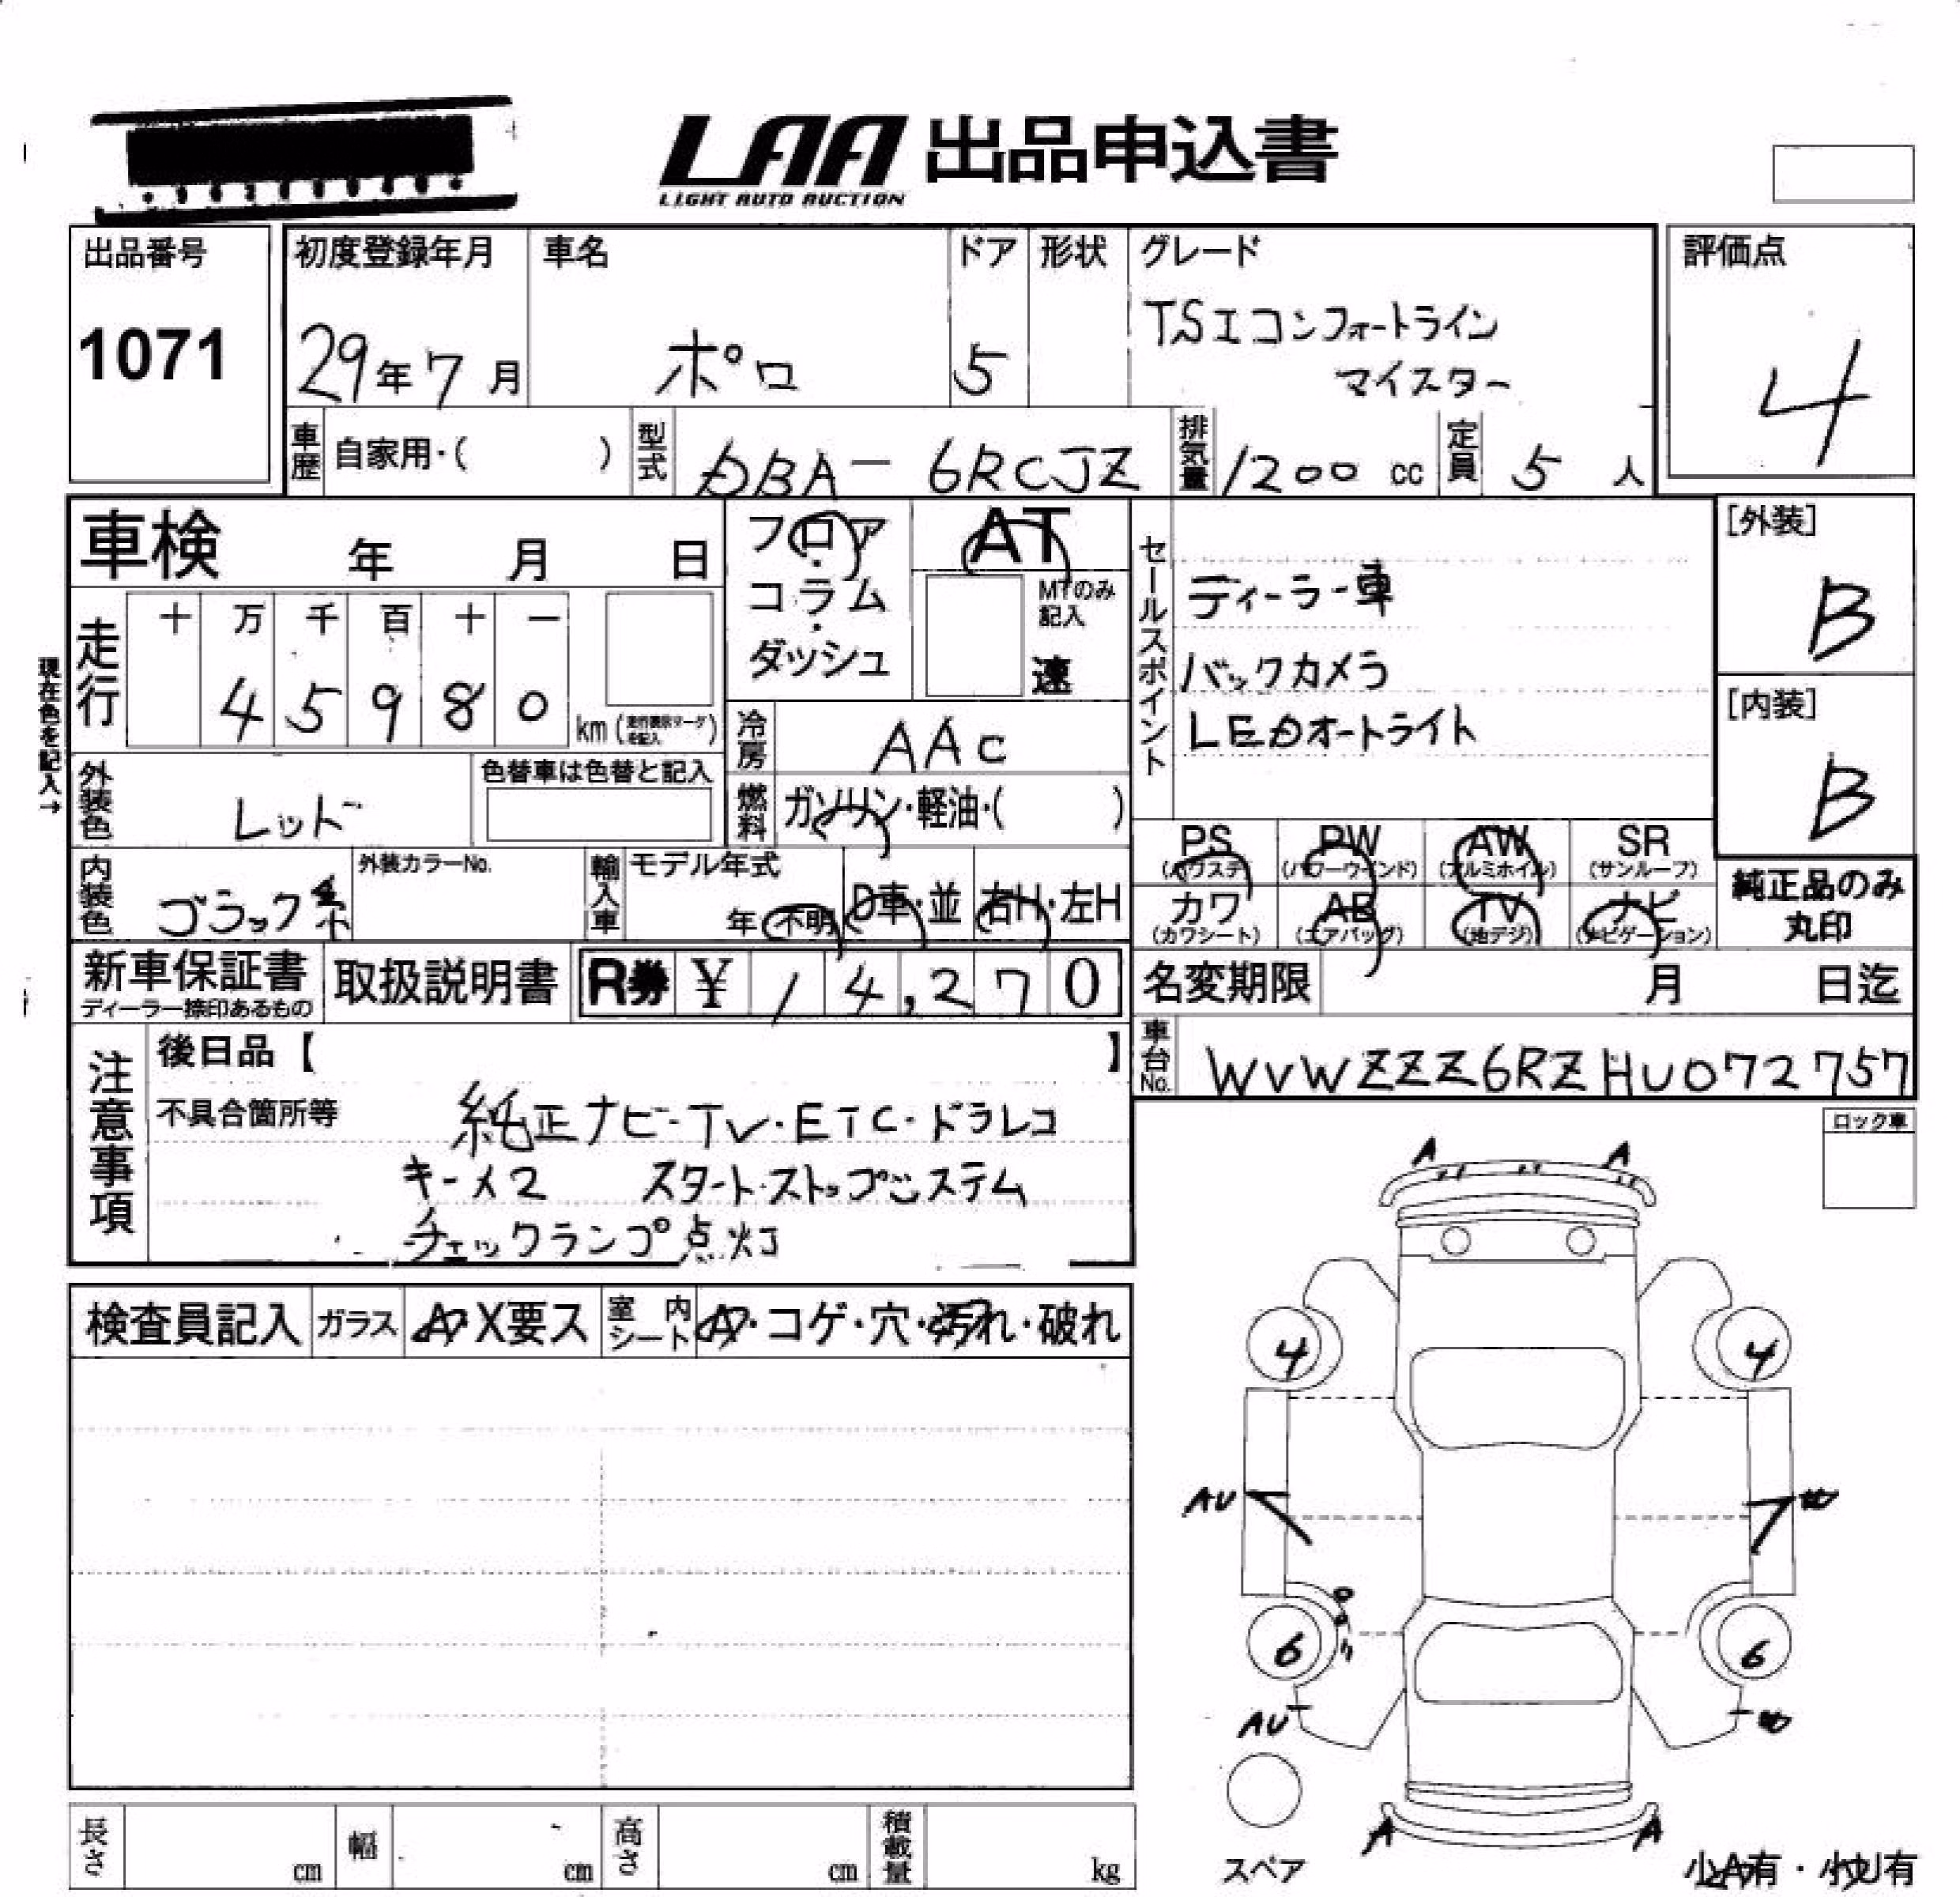 LAA 出品申込書
LIGHT AUTO AUCTION
出品番号
1071
初度登録年月
29年7月
車名
ポロ
ドア
5
形状
グレード
TSIコンフォートライン
マイスター
評価点
4
車歴 自家用・( )
型式 DBA-6RCJZ
排気量 1200 cc
定員 5 人
車検 年 月 日
フロア・コラム・ダッシュ
AT
MTのみ記入
速
セールスポイント
ディーラー車
バックカメラ
LEDオートライト
[外装]
B
[内装]
B
走行
十 万 千 百 十 一
4 5 9 8 0
km (走行表示マークを記入)
現在色を記入→
冷房 AAC
外装色 レッド
色替車は色替と記入
燃料 ガソリン・軽油・( )
PS (パワステ)
PW (パワーウインド)
AW (アルミホイル)
SR (サンルーフ)
カワ (カワシート)
AB (エアバッグ)
TV (地デジ)
ナビ (ナビゲーション)
純正品のみ
丸印
内装色 ブラック系
外装カラーNo.
輸入車
モデル年式
年 不明
D車・並
右H・左H
新車保証書
ディーラー捺印あるもの
取扱説明書
R券 ¥ 14,270
名変期限 月 日迄
車台No. WVWZZZ6RZHU072757
注意事項
後日品【 】
不具合箇所等 純正ナビ・TV・ETC・ドラレコ
キー×2 スタートストップシステム
チェックランプ点灯
ロック車
検査員記入 ガラス A X要ス 室内シート A・コゲ・穴・汚れ・破れ
A A
4 4
AU
6 6
AU
A A
スペア
小A有・小U有
長さ cm 幅 cm 高さ cm 積載量 kg